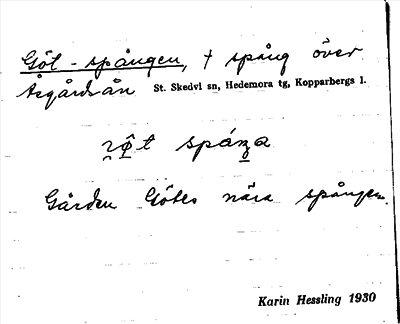 Göt-spången, † spång över
Åsgårdsån St. Skedvi sn, Hedemora tg, Kopparbergs l.
spáŋa
Gården Götes nära spången.
Karin Hessling 1930